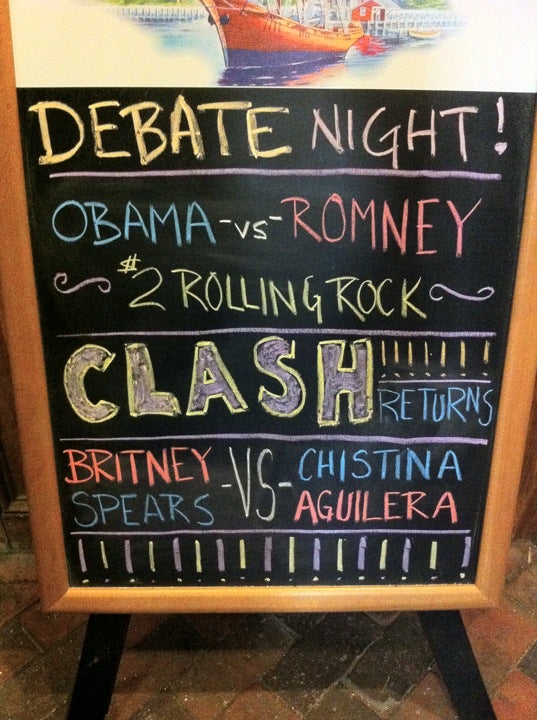 DEBATE NIGHT!
OBAMA -vs- ROMNEY
$2 ROLLING ROCK
CLASH RETURNS
BRITNEY SPEARS -VS- CHISTINA AGUILERA